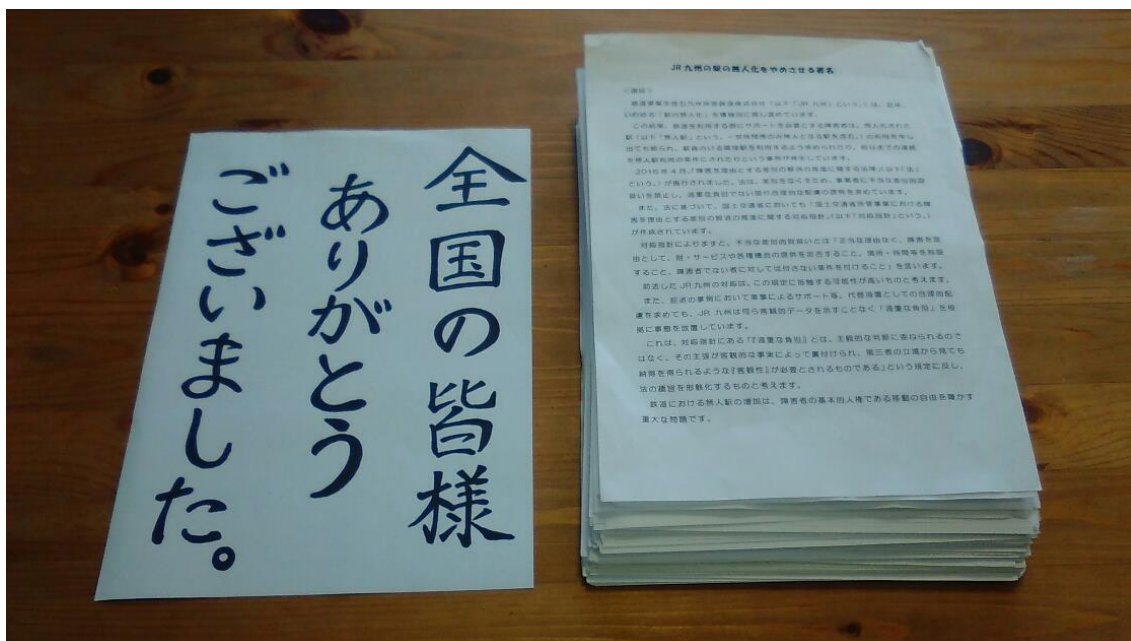 全国の皆様
ありがとう
ございました。
JR九州の駅の無人化をやめさせる署名
＜趣旨＞
鉄道事業を営む九州旅客鉄道株式会社（以下「JR 九州」という。）は、近年、
いわゆる「駅の無人化」を積極的に推し進めています。
この結果、鉄道を利用する際にサポートを必要とする障害者は、無人化された
駅（以下「無人駅」という。一定時間帯のみ無人となる駅を含む。）の利用を申し
出ても断られ、駅員のいる隣接駅を利用するよう求められたり、前日までの連絡
を無人駅利用の条件にされたりという事例が発生しています。
2016年4月、「障害を理由とする差別の解消の推進に関する法律」（以下「法」
という。）が施行されました。法は、差別をなくすため、事業者に不当な差別的取
扱いを禁止し、過重な負担でない限り合理的な配慮の提供を求めています。
また、法に基づいて、国土交通省においても「国土交通省所管事業における障
害を理由とする差別の解消の推進に関する対応指針」（以下「対応指針」という。）
が作成されています。
対応指針によりますと、不当な差別的取扱いとは「正当な理由なく、障害を理
由として、財・サービスや各種機会の提供を拒否すること、場所・時間等を制限
すること、障害者でない者に対しては付さない条件を付けること」を言います。
前述したJR九州の対応は、この規定に抵触する可能性が高いものと考えます。
また、前述の事例において乗車によるサポート等、代替措置としての合理的配
慮を求めても、JR 九州は何ら客観的データを示すことなく「過重な負担」を根
拠に事態を放置しています。
これは、対応指針にある「『過重な負担』とは、主観的な判断に委ねられるので
はなく、その主張が客観的な事実によって裏付けられ、第三者の立場から見ても
納得を得られるような『客観性』が必要とされるものである」という規定に反し、
法の趣旨を形骸化するものと考えます。
鉄道における無人駅の増加は、障害者の基本的人権である移動の自由を脅かす
重大な問題です。